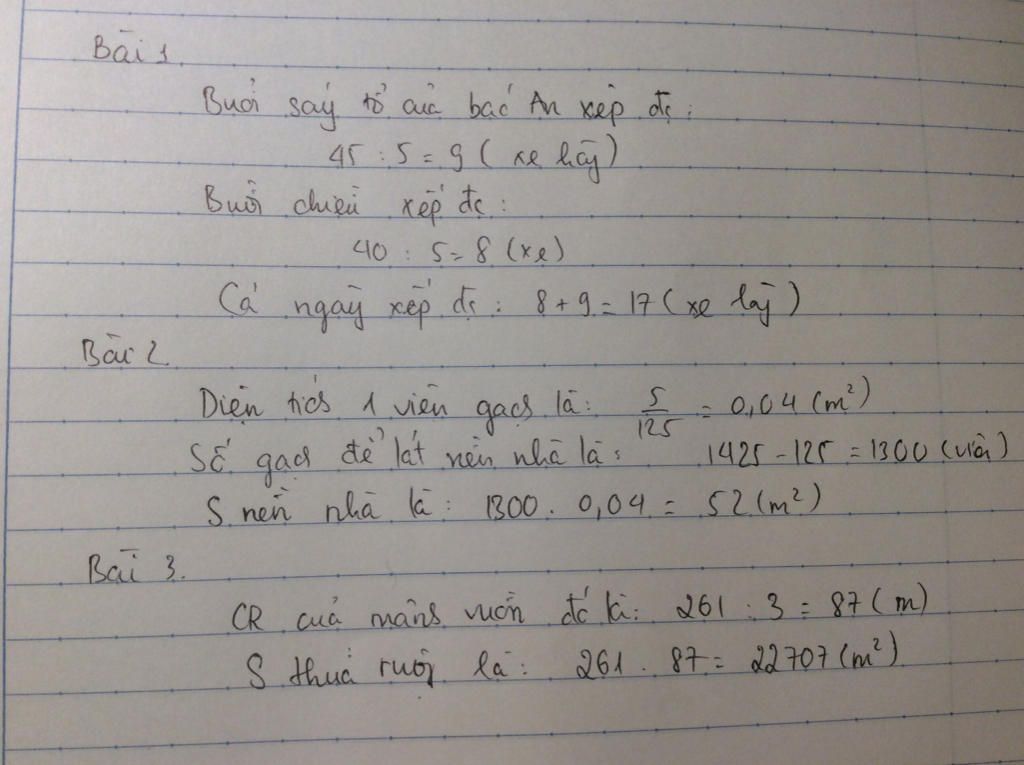 Bài 1.
Buổi sáng tổ của bác An xếp đc:
45 : 5 = 9 ( xe hàng)
Buổi chiều xếp đc:
40 : 5 = 8 (xe)
Cả ngày xếp đc: 8 + 9 = 17 ( xe hàng )
Bài 2
Diện tích 1 viên gạch là: 5/125 = 0,04 (m²)
Số gạch để lát nền nhà là: 1425 - 125 = 1300 (viên)
S nền nhà là: 1300 . 0,04 = 52 (m²)
Bài 3.
CR của mảnh vườn đó là: 261 : 3 = 87 ( m)
S thửa ruộng là: 261 . 87 = 22707 (m²)